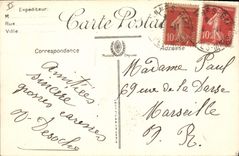 Expéditeur:
M
Rue
Ville
Carte Postale
Correspondance
Adresse
Amitiés
sincère
grosses caresses
Madame Paul
69 rue de la Darse
Marseille
10
10